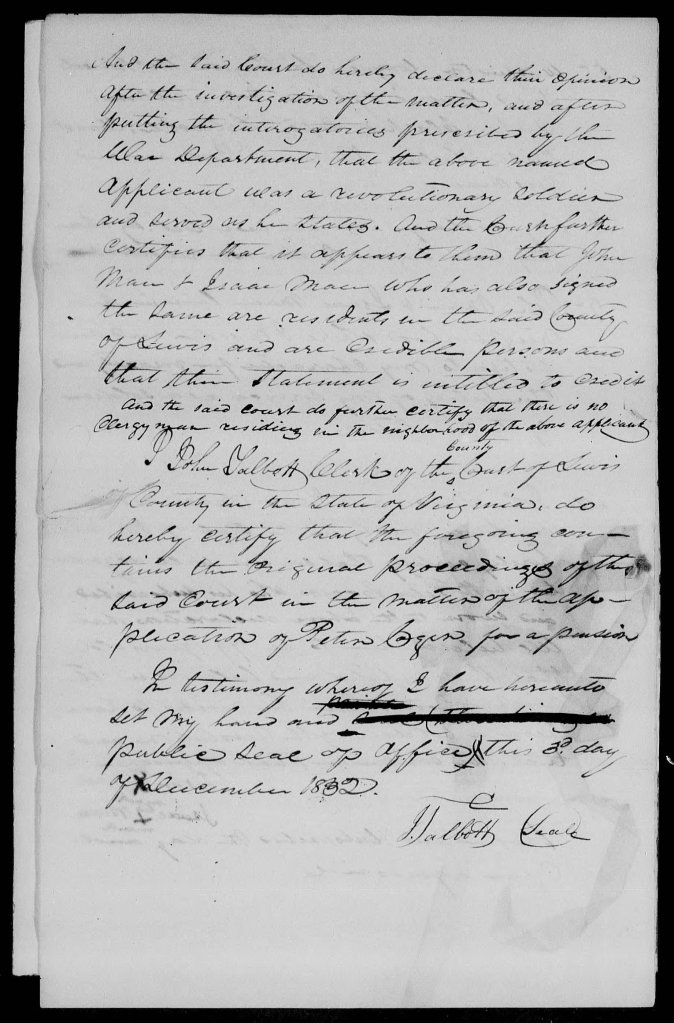 And the said Court do hereby declare their opinion
after the investigation of the matter, and after
putting the interogatories prescribed by the
War Department, that the above named
applicant was a revolutionary soldier
and served as he states. And the Court further
certifies that it appears to them that John
Mace & Isaac Mace who has also signed
the same are residents in the said County
of Lewis and are credible persons and
that their statement is intitled to credit
And the said court do further certify that there is no
Clergyman residing in the neighborhood of the above applicant
County
I John Talbott Clerk of the Court of Lewis
County in the State of Virginia, do
hereby certify that the foregoing con-
tains the original proceedings of the
said Court in the matter of the ap-
plication of Peter Cogar for a pension
In testimony whereof I have hereunto
set my hand and
public seal of office this 3d. day
of December 1832.
J. Talbott Seal